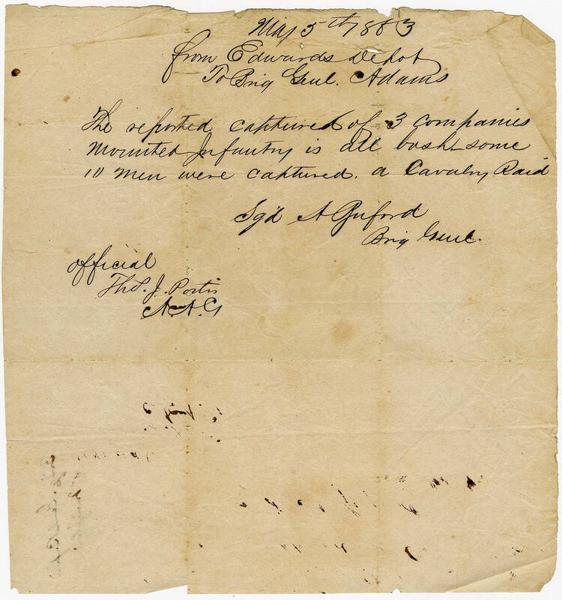 May 5th / 1863
from Edwards Depot
To Brig Genl. Adams
The reported captured of 3 companies
mounted Infantry is all bosh, some
10 men were captured. a Cavalry Raid
Sgd A Buford
Brig Genl.
official
Tho. J. Portis
A.A.G